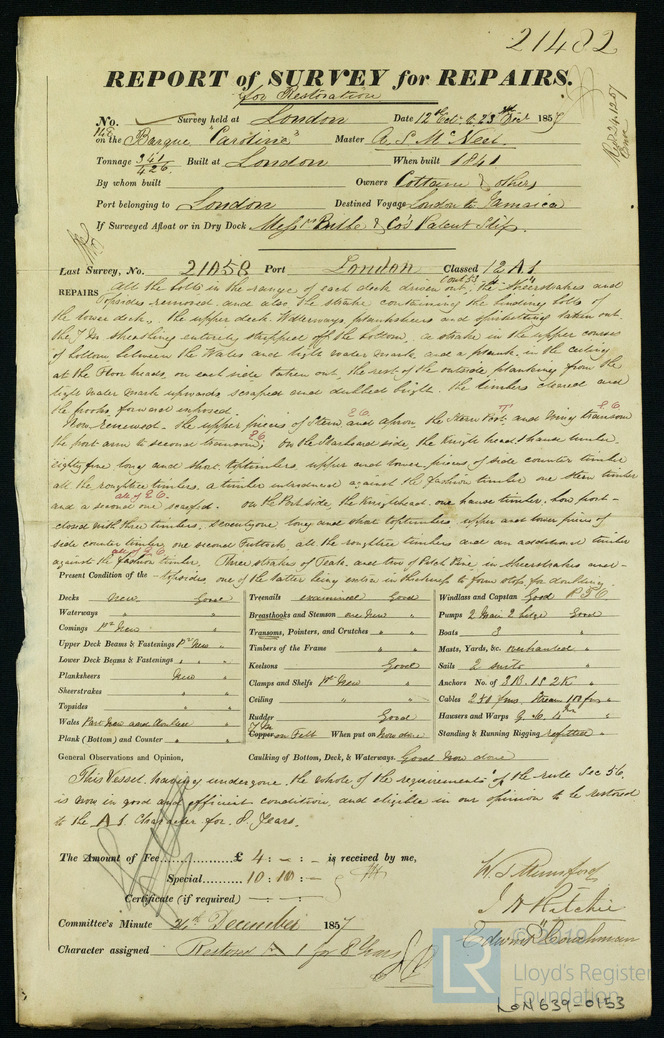 21482
REPORT of SURVEY for REPAIRS.
for Restoration
No. 148 Survey held at London Date 12th Oct. to 23rd Decr 1857
Recd 24.12.57
on the Barque "Caroline" Master A. S. McNeel.
Tonnage 341/426 Built at London When built 1841
By whom built Owners & others
Port belonging to London Destined Voyage London to Jamaica
If Surveyed Afloat or in Dry Dock Messrs & Co's Patent Slip.
Last Survey, No. 21058 Port London Classed 12 A 1
REPAIRS All the bolts in the range of each deck driven out, the Sheerstrakes and
Topsides removed and also the strake containing the binding bolts of
the lower deck, the upper deck Waterways, plankshears and spirketting taken out,
the Y.M. sheathing entirely stripped off the bottom, a strake in the upper course
of bottom, between the Wales and light water mark, and a plank in the ceiling
at the Floor heads, on each side taken out, the rest of the outside planking from the
light water mark upwards scraped and dubbed bright, the timbers cleaned and
the hooks forward exposed.
Now renewed - the upper pieces of Stem and apron, the Stern Post and Wing transom
the port arm to second transom, On the Starboard side, the Knight head, 1 hawse timber,
eighty five long and short toptimbers, upper and lower pieces of side counter timber
all the roughtree timbers, a timber introduced against the fashion timber one Stern timber
and a second one scarfed. On the Port side, the Knighthead, one hawse timber, bow port
closed with three timbers, seventy one long and short toptimbers, upper and lower pieces of
side counter timber, one second Futtock, all the roughtree timbers and an additional timber
against the fashion timber. Three strakes of Teak, and two of Pitch Pine in Sheerstrakes and
topsides, one of the latter being
Present Condition of the
Decks New Good
Waterways " "
Comings Pt New "
Upper Deck Beams & Fastenings Pt New "
Lower Deck Beams & Fastenings " "
Planksheers New "
Sheerstrakes " "
Topsides " "
Wales Part New and doubled "
Plank (Bottom) and Counter " "
Treenails examined Good
Breasthooks and Stemson one New "
Transoms, Pointers, and Crutches " "
Timbers of the Frame "
Keelsons Good
Clamps and Shelfs Pt New "
Ceiling " "
Rudder Good
Y.M. Copper on Felt When put on Now done
Windlass and Capstan Good
Pumps 2 Main 2 bilge Good
Boats 3 "
Masts, Yards, &c. overhauled "
Sails 2 suits "
Anchors No. of 3 B. 1 S 2 K "
Cables 250 fms. Stream "
Hawsers and Warps "
Standing & Running Rigging refitted "
General Observations and Opinion, Caulking of Bottom, Deck, & Waterways. Good Now done
This Vessel having undergone the whole of the requirements of the rule Sec 56,
is now in good and efficient condition, and eligible in our opinion to be restored
to the A 1 Character for 8 Years.
The Amount of Fee £ 4 : - : - is received by me,
Special 10 : 10 : -
Certificate (if required) - : - :
W. J. Mumford
J. H. Ritchie
Edward Couchman
Committee's Minute 24th December 1857
Character assigned Restored A 1 for 8 Years
© 2019
LR Lloyd's Register
Foundation
LON639-0153